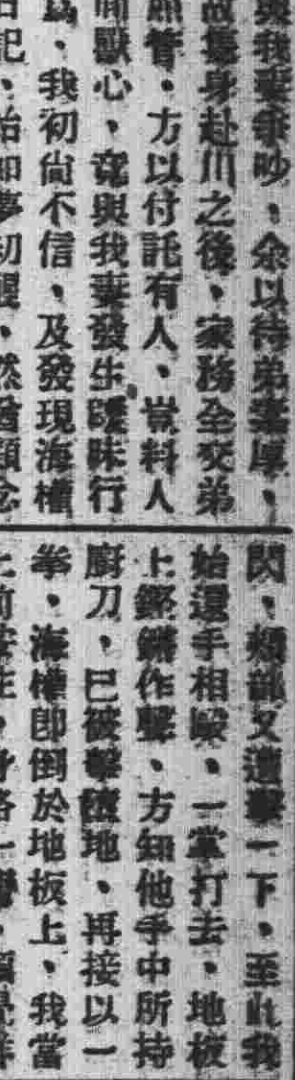 與我妻爭吵、余以待弟寔厚、
故隻身赴川之後、家務全交弟
照管、方以付託有人、豈料人
面獸心、竟與我妻發生曖昧行
爲、我初尙不信、及發現海權
日記、始如夢初醒、然猶顧念
閃、頰部又遭擊一下、至此我
始還手相毆、一掌打去、地板
上鏗鏘作聲、方知他手中所持
廚刀、已被擊墮地、再接以一
拳、海權卽倒於地板上、我當
上前